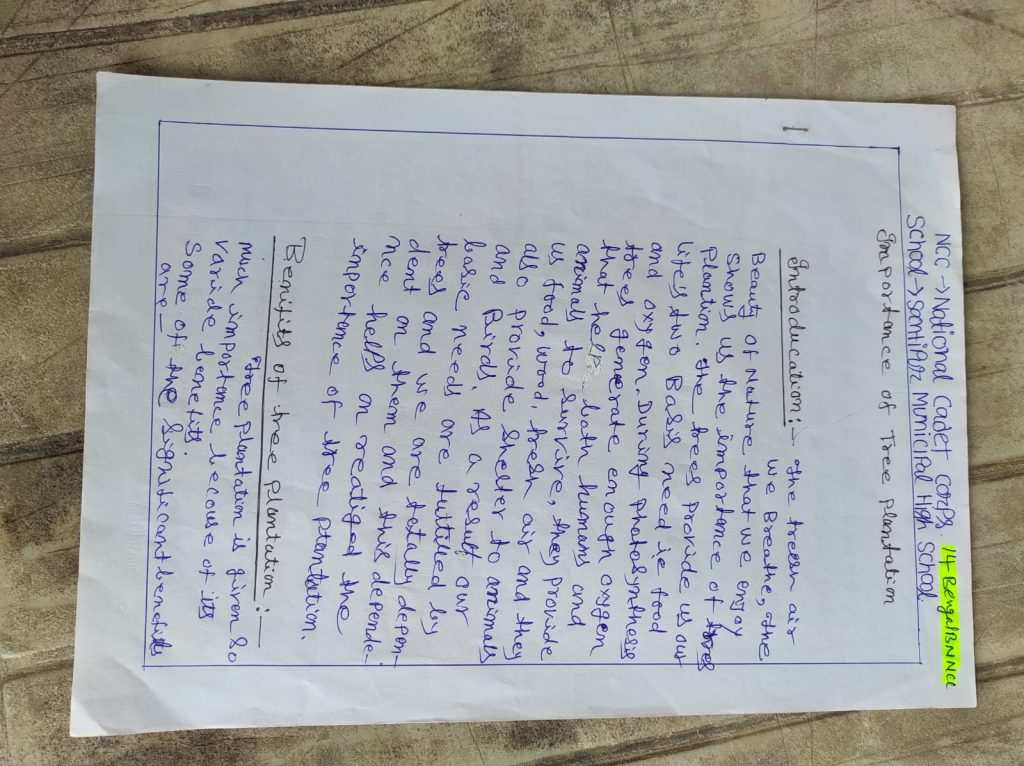 NCC → National Cadet Corps. 14 Bengal BN NCC
School → Santipur Municipal High School.
Importence of Tree Plantation
Introducation:- The fresh air
we Breathe, the
Beauty of Nature that we enjoy
shows us the importence of trees
Plantion. The trees provide us our
lifes two Basis need ie food
and oxygen. During photosynthesis
trees generate enough oxygen
that helps both humans and
animals to survive, they provide
us food, wood, fresh air and they
also provide shelter to animals
and Birds. As a result our
basic needs are fulfilled by
trees and we are totally depen-
dent on them and this depende-
nce helps on realiged the
importence of tree plantation.
Benifits of tree plantation:-
Tree plantation is given so
much importance becouse of its
Varide benefits.
Some of the significant benefits
are-